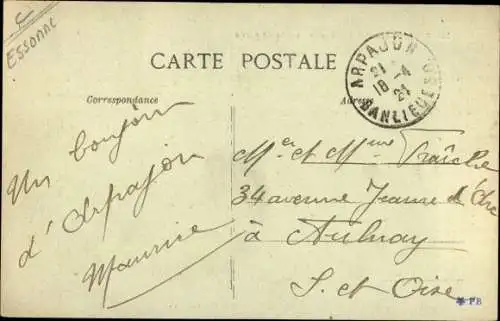 ESSONNE
CARTE POSTALE
ARPAJON
21
18 -4
21
BANLIEUE
Correspondance
Adresse
Un bonjour
d'Arpajon
Maurice
Mr et Mme Fraîche
34 avenue Jeanne d'Arc
à Aulnay
S. et Oise
PB